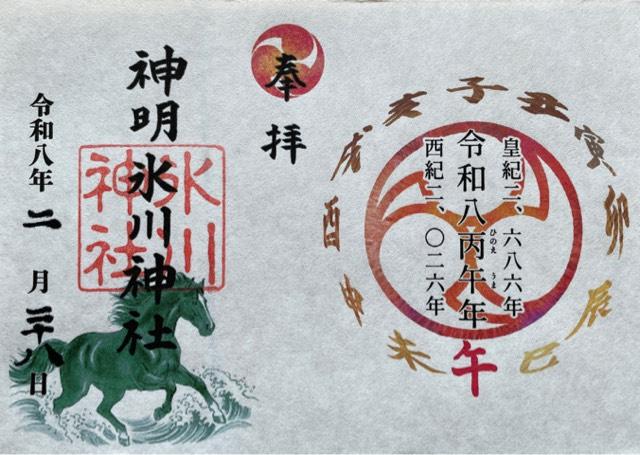 皇紀二、六八六年
令和八丙午年
ひのえ うま
西紀二、〇二六年
子
丑
寅
卯
辰
巳
午
未
申
酉
戌
亥
奉拝
神明氷川神社
氷川
神社
令和八年二月二十八日